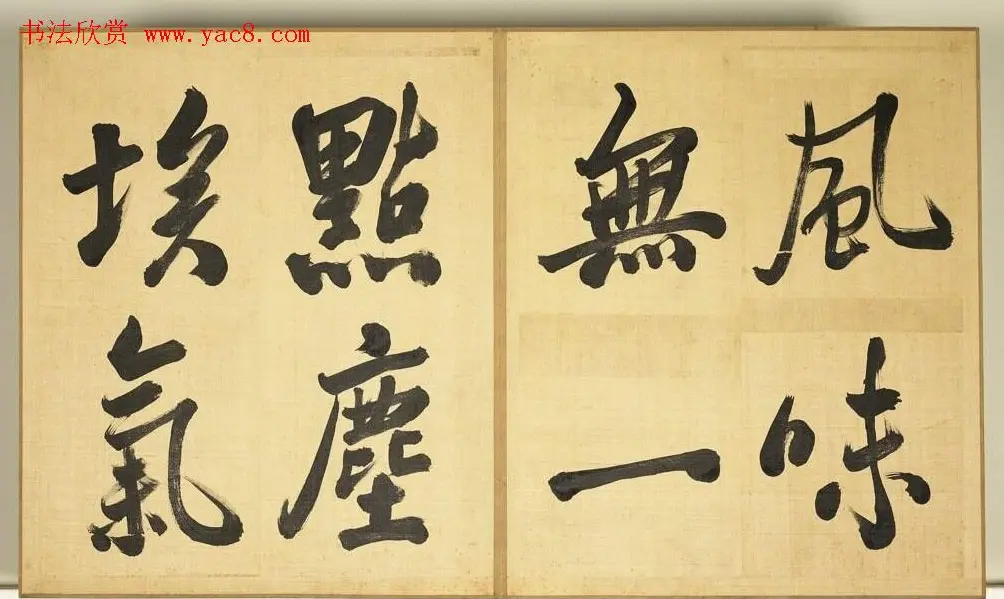 书法欣赏 www.yac8.com
風味
無一
點塵
埃氣